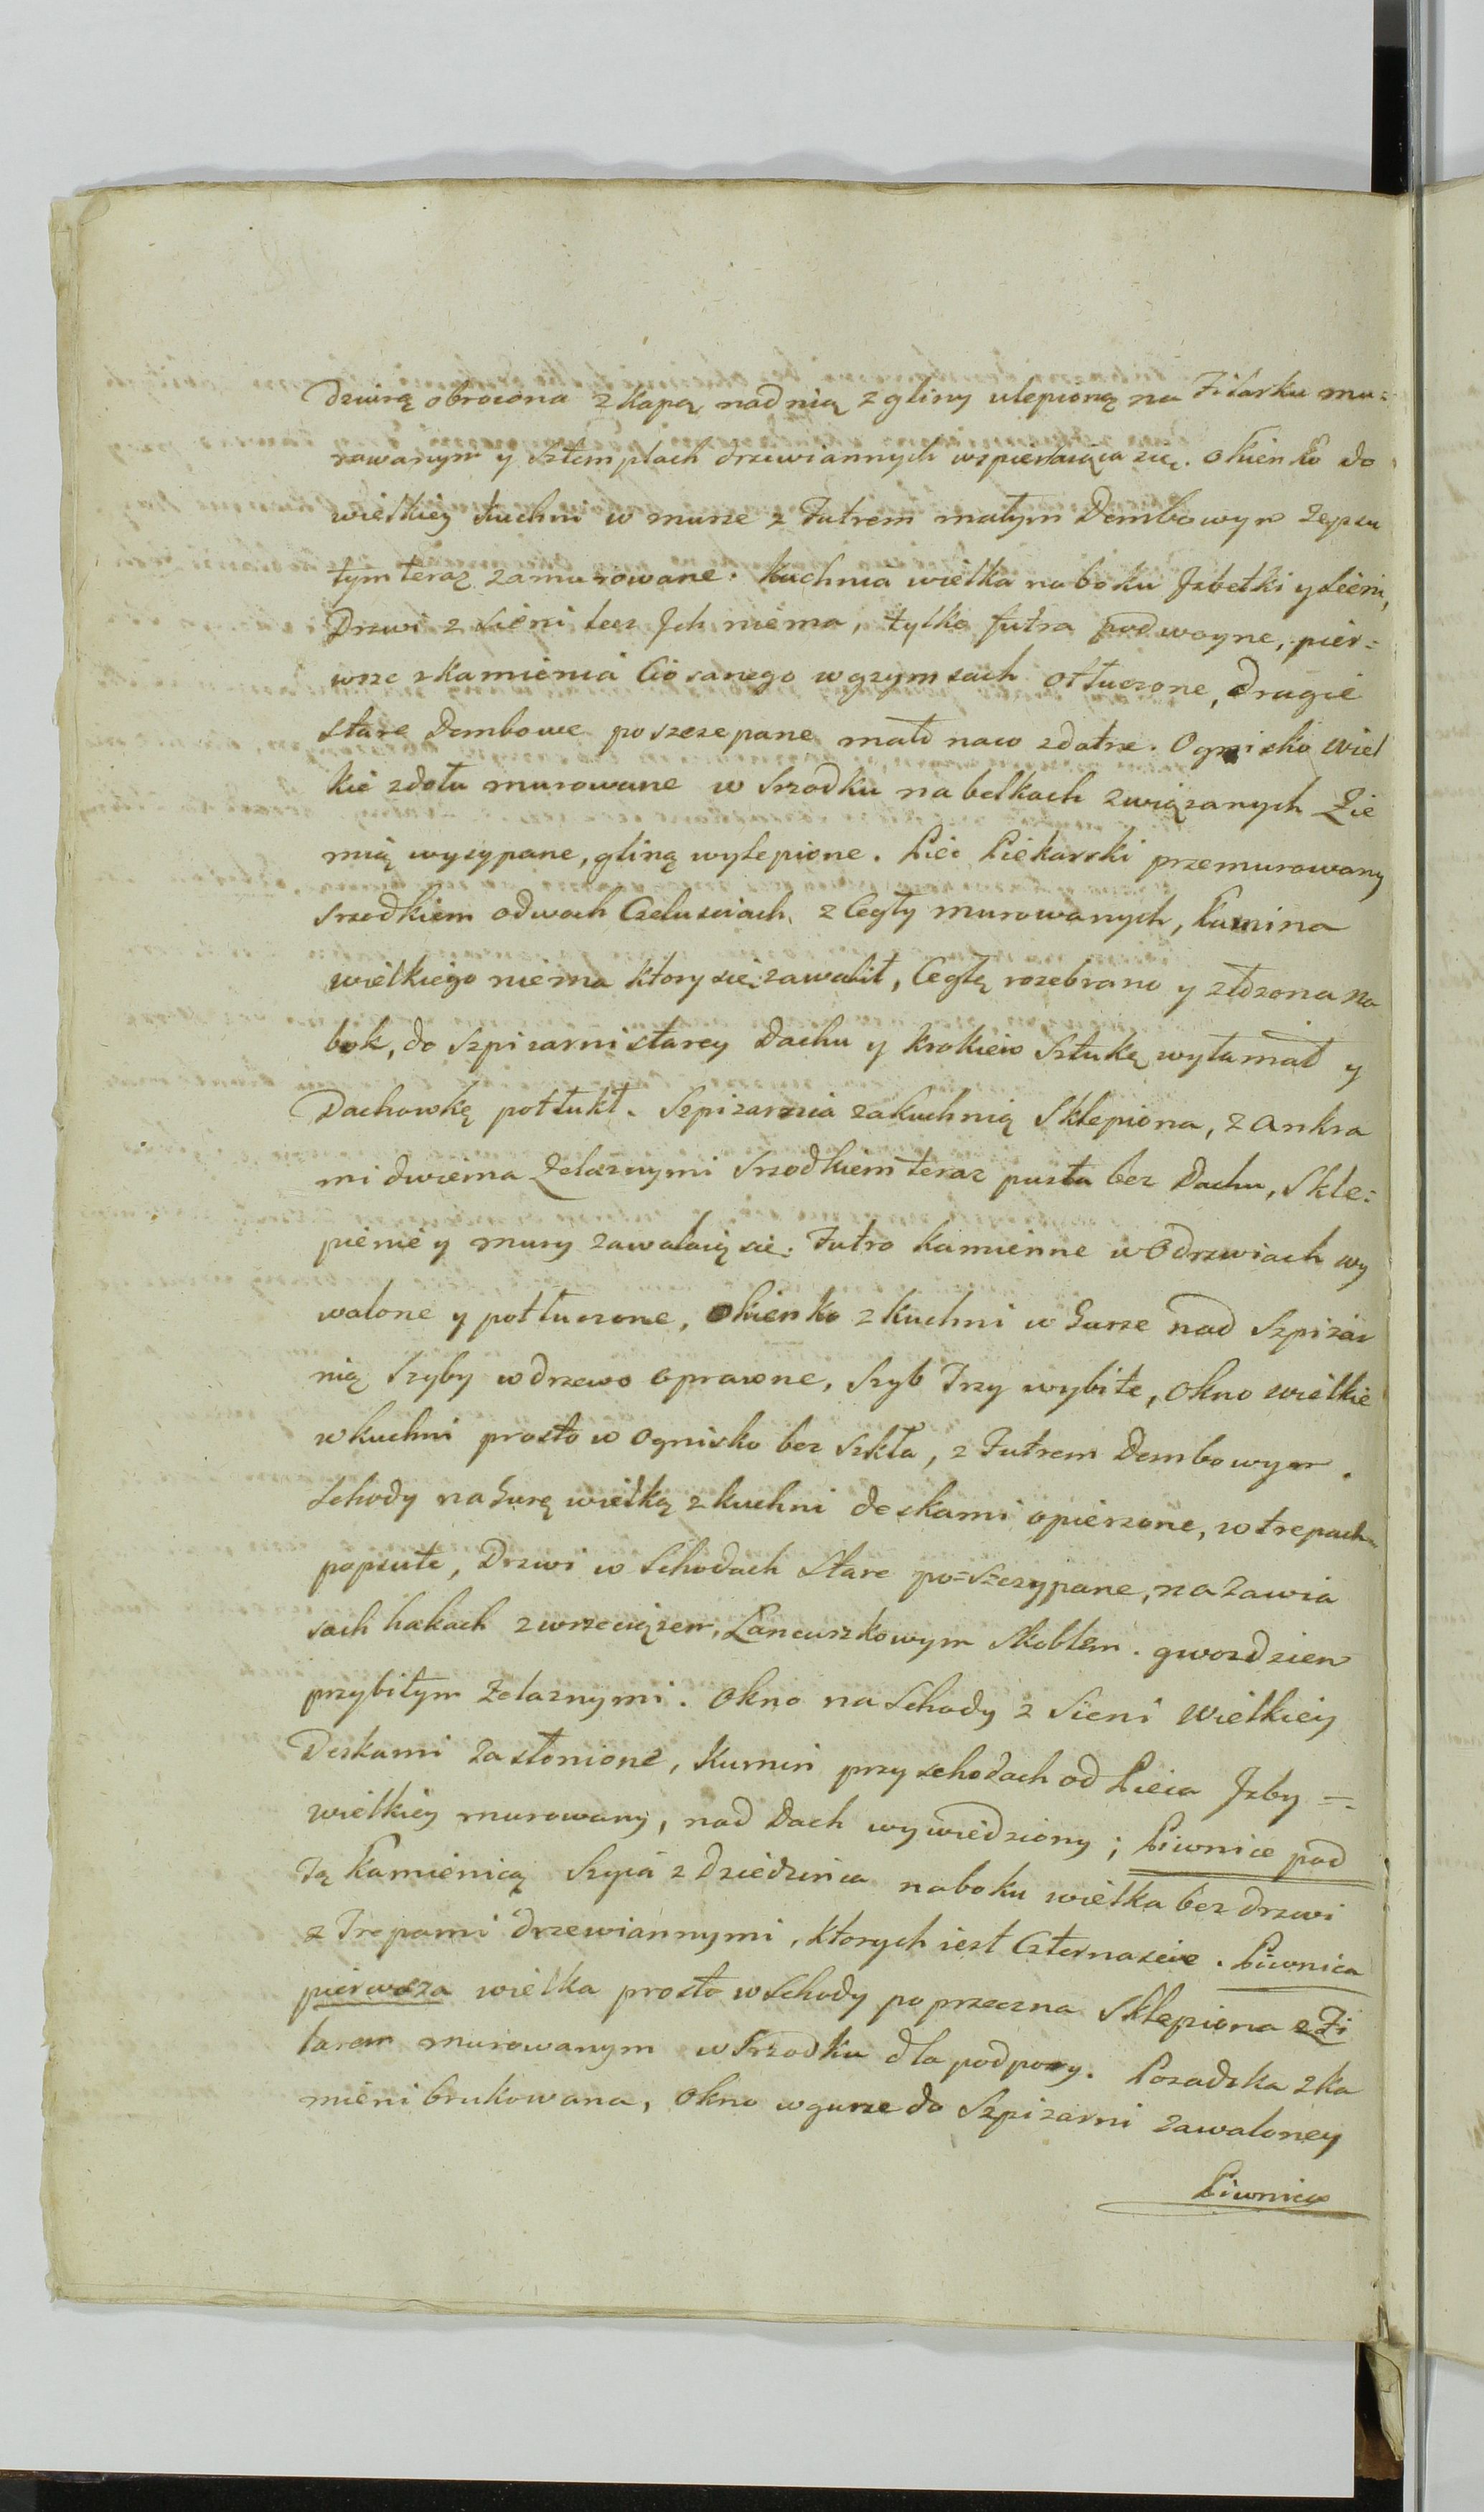 Dziurą obrocona z kapą nad nią z gliny ulepioną na Filarku mu=
rowanym y sztemplach drzewiannych wspieraiąca się. Okienko do
wielkiey kuchni w murze z Futrem małym Dembowym zepsu
tym teraz zamurowane. Kuchnia wielka na boku Izbetki y sieni,
Drzwi z sieni lecz Ich niema, tylko futra podwoyne, pier=
wsze z kamienia Ciosanego w gzymsach otłuczone, drugie
stare Dembowe poszczepane mało naco zdatne. Ognisko wiel
kie zdołu murowane w srzodku na belkach związanych Zie
mią wysypane, gliną wylepione. Piec Piekarski przemurowany
srzodkiem o dwoch Czelusciach z Cegły murowanych, Kamina
wielkiego niema ktory się zawalił, Cegłę rozebrano y złożona na
bok, do szpizarni starey Dachu y krokiew sztukę wyłamał y
Dachowkę potłukł. Szpizarnia za kuchnią Sklepiona, z ankra
mi dwiema żelaznymi srzodkiem teraz pusta bez Dachu, Skle=
pienie y mury zawalaią się. Futro kamienne w Odrzwiach wy
walone y potłuczone, Okienko z kuchni w Gurze nad Szpizar
nią szyby w drzewo oprawne, szyb Trzy wybite, Okno wielkie
w kuchni prosto w Ognisko bez szkła, z Futrem Dembowym.
Schody na Gurę wielką z kuchni deskami opierzone, w trepach
popsute, Drzwi w Schodach stare po=szczypane, na zawia
sach hakach z wrzeciązem, Lancuszkowym Skoblem. gwozdziem
przybitym żelaznymi. Okno na Schody z Sieni wielkiey
Deskami zasłonione, Kumin przy schodach od Pieca Izby =
wielkiey murowany, nad Dach wywiedziony; Piwnice pod
Tą Kamienicą Szyia z dziedzińca na boku wielka bez drzwi
z Trepami drzewiannymi, ktorych iest Czternascie. Piwnica
pierwsza wielka prosto w Schody poprzeczna Sklepiona z Fi
larem murowanym w srzodku dla podpory. Posadzka z ka
mieni brukowana, Okno w gurze do Szpizarni zawaloney
Piwnica